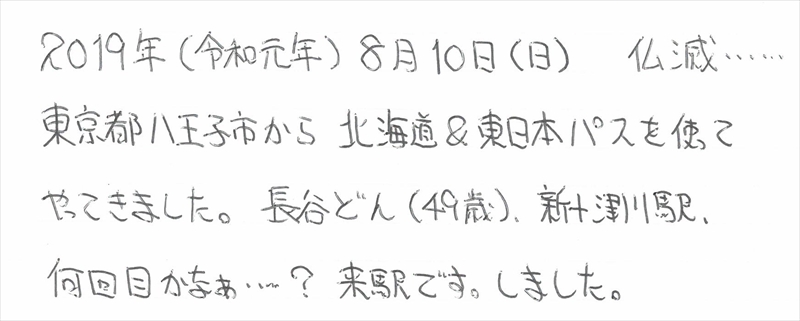 2019年(令和元年)8月10日(日) 仏滅……
東京都八王子市から 北海道&東日本パスを使って
やってきました。長谷どん(49歳)、新十津川駅、
何回目かなぁ……?来駅です。しました。